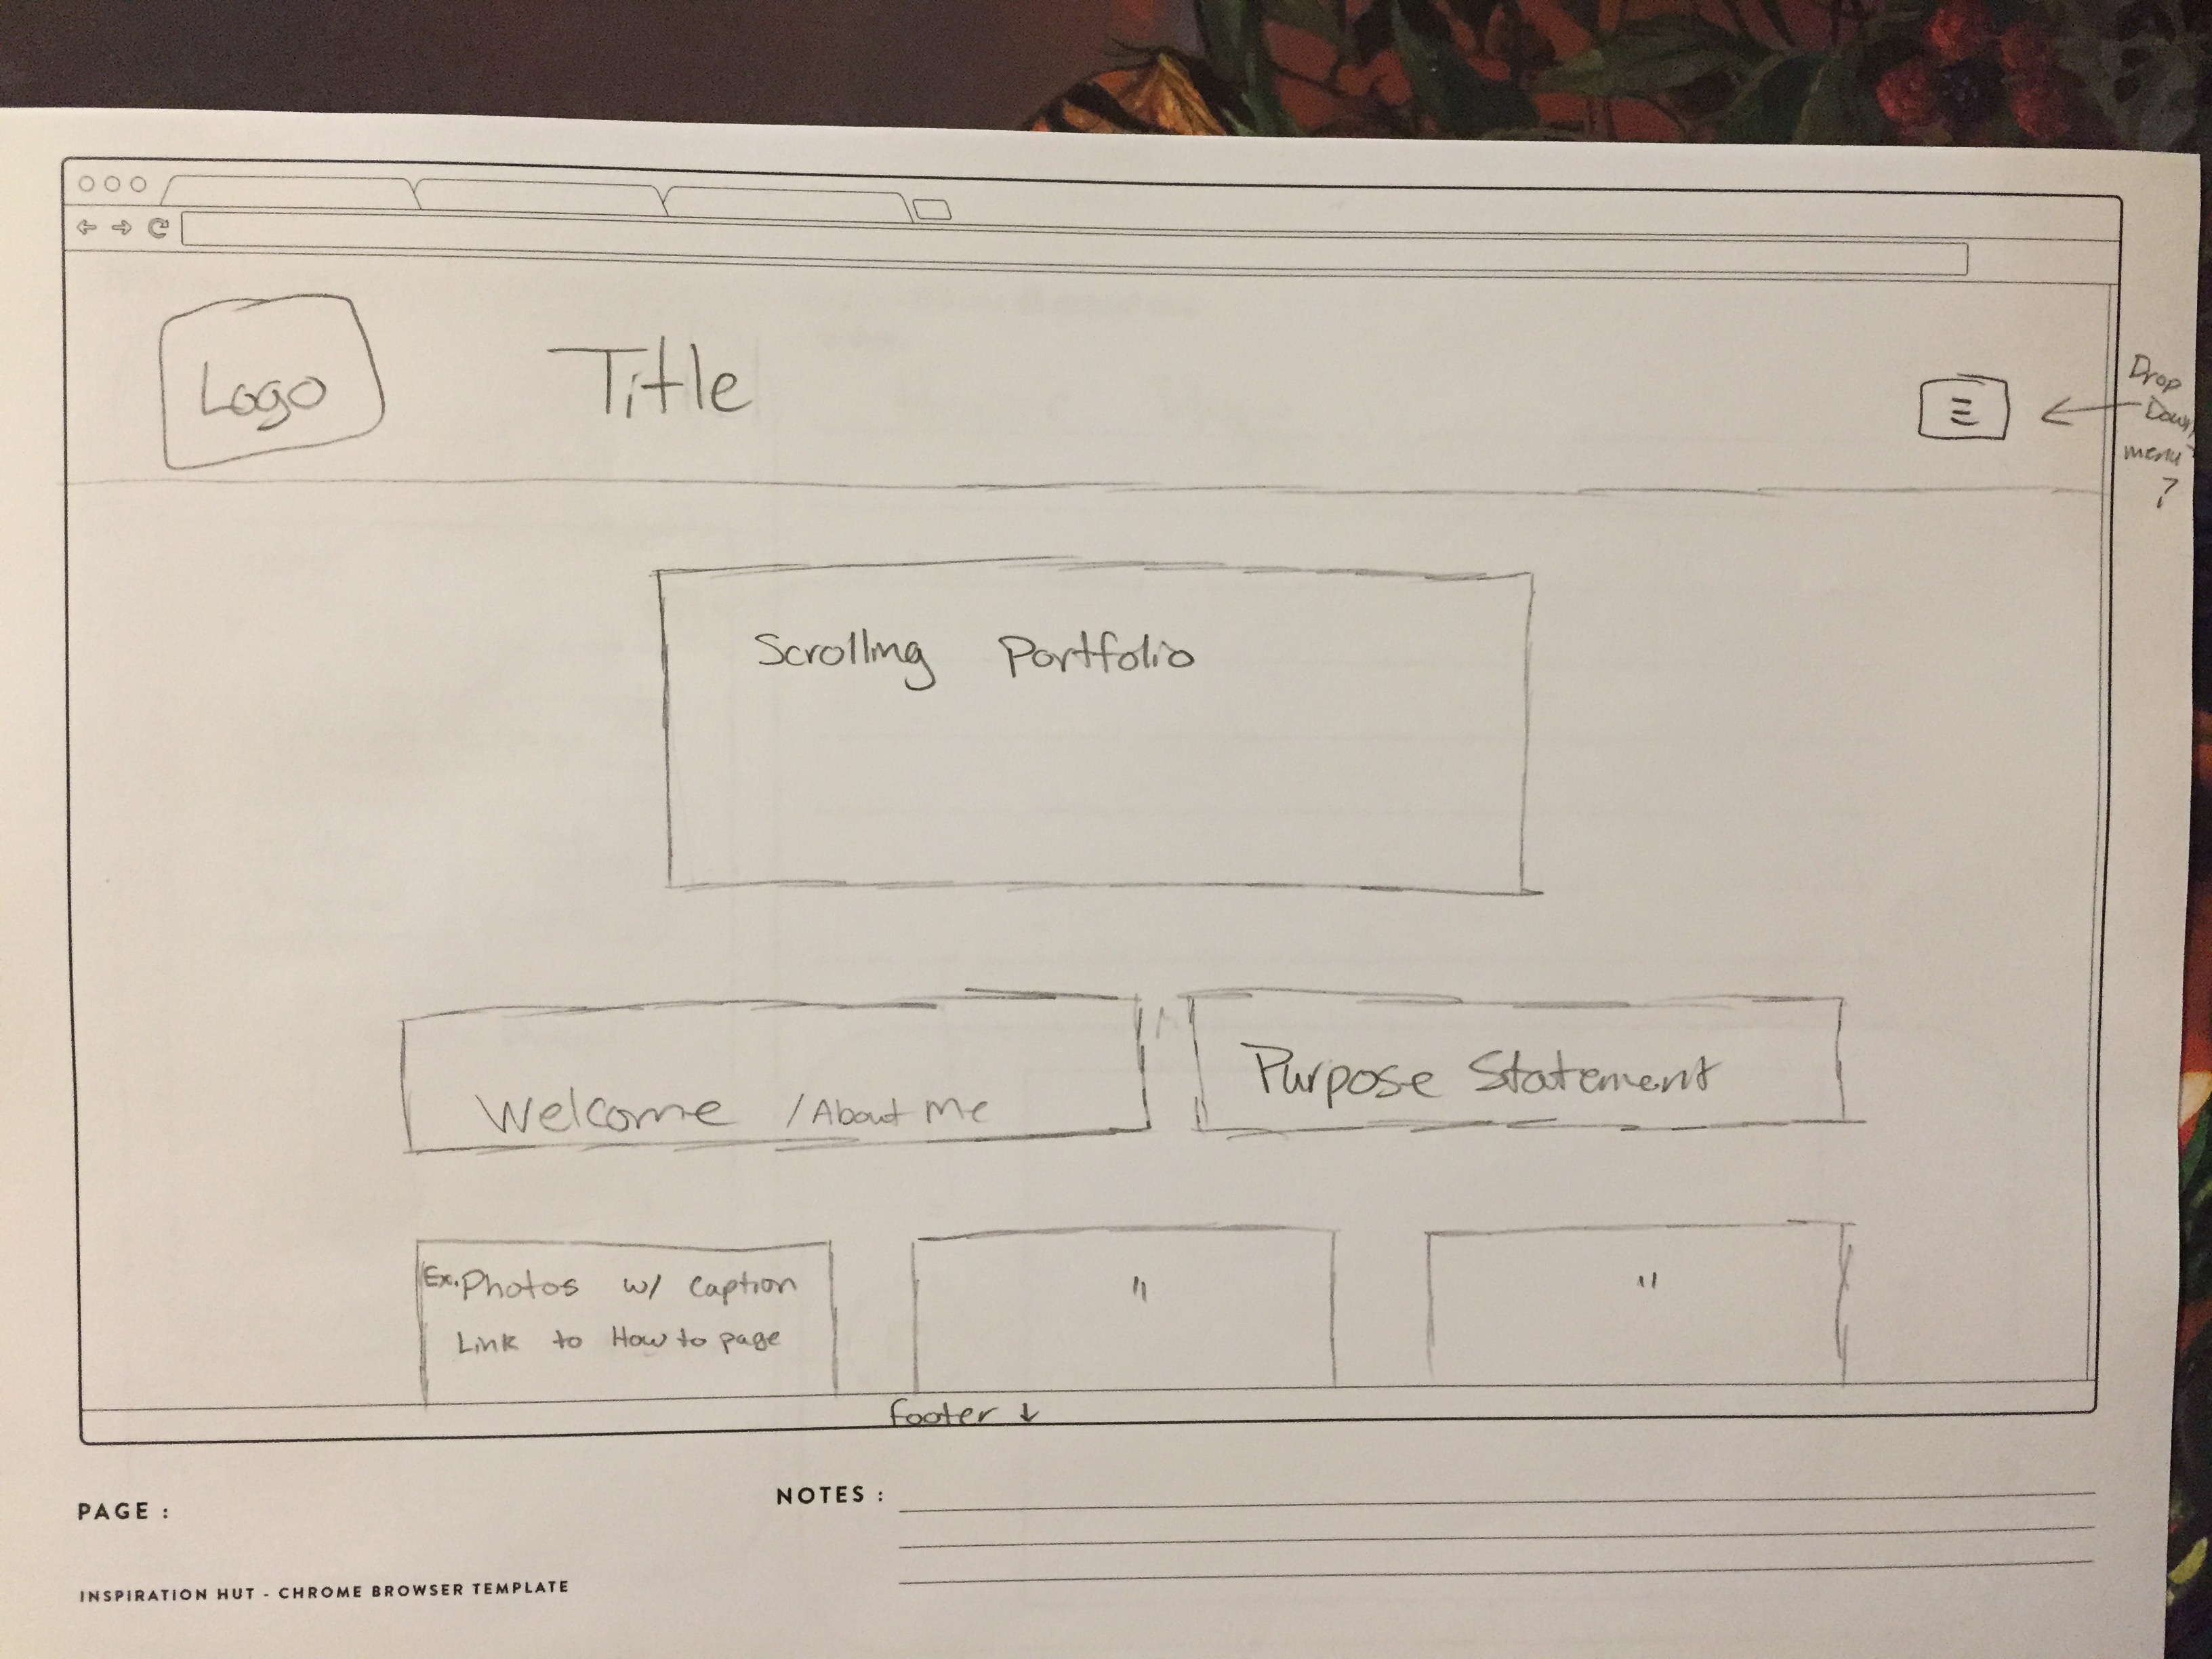 Logo
Title
Drop
Down
menu
?
Scrolling Portfolio
Welcome / About Me
Purpose Statement
Ex. Photos w/ caption
Link to How to page
"
"
footer ↓
PAGE :
NOTES :
INSPIRATION HUT - CHROME BROWSER TEMPLATE